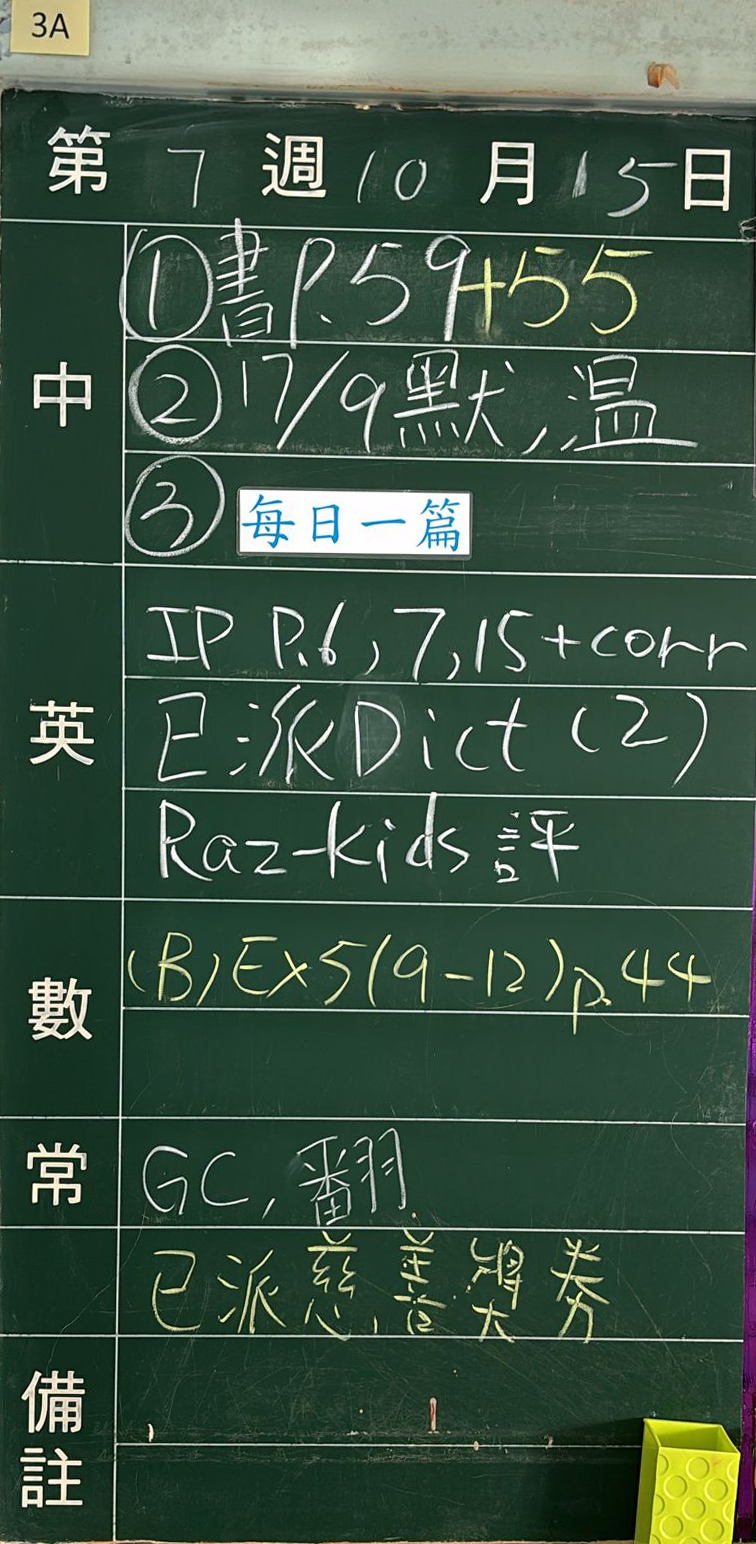 3A
第 7 週 10 月 15 日
中
①書P.59+55
②17/9默,溫
③ 每日一篇
英
IP P.6,7,15+corr
已派Dict(2)
Raz-kids 評
數
(B)Ex5(9-12)p.44
常
GC,翻
已派慈善獎券
備註